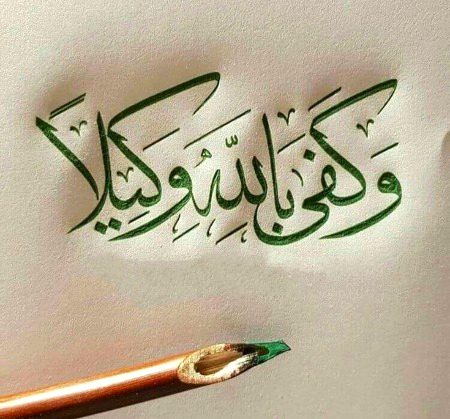 وَكَفَى بَاللهِ وَكِيلاً